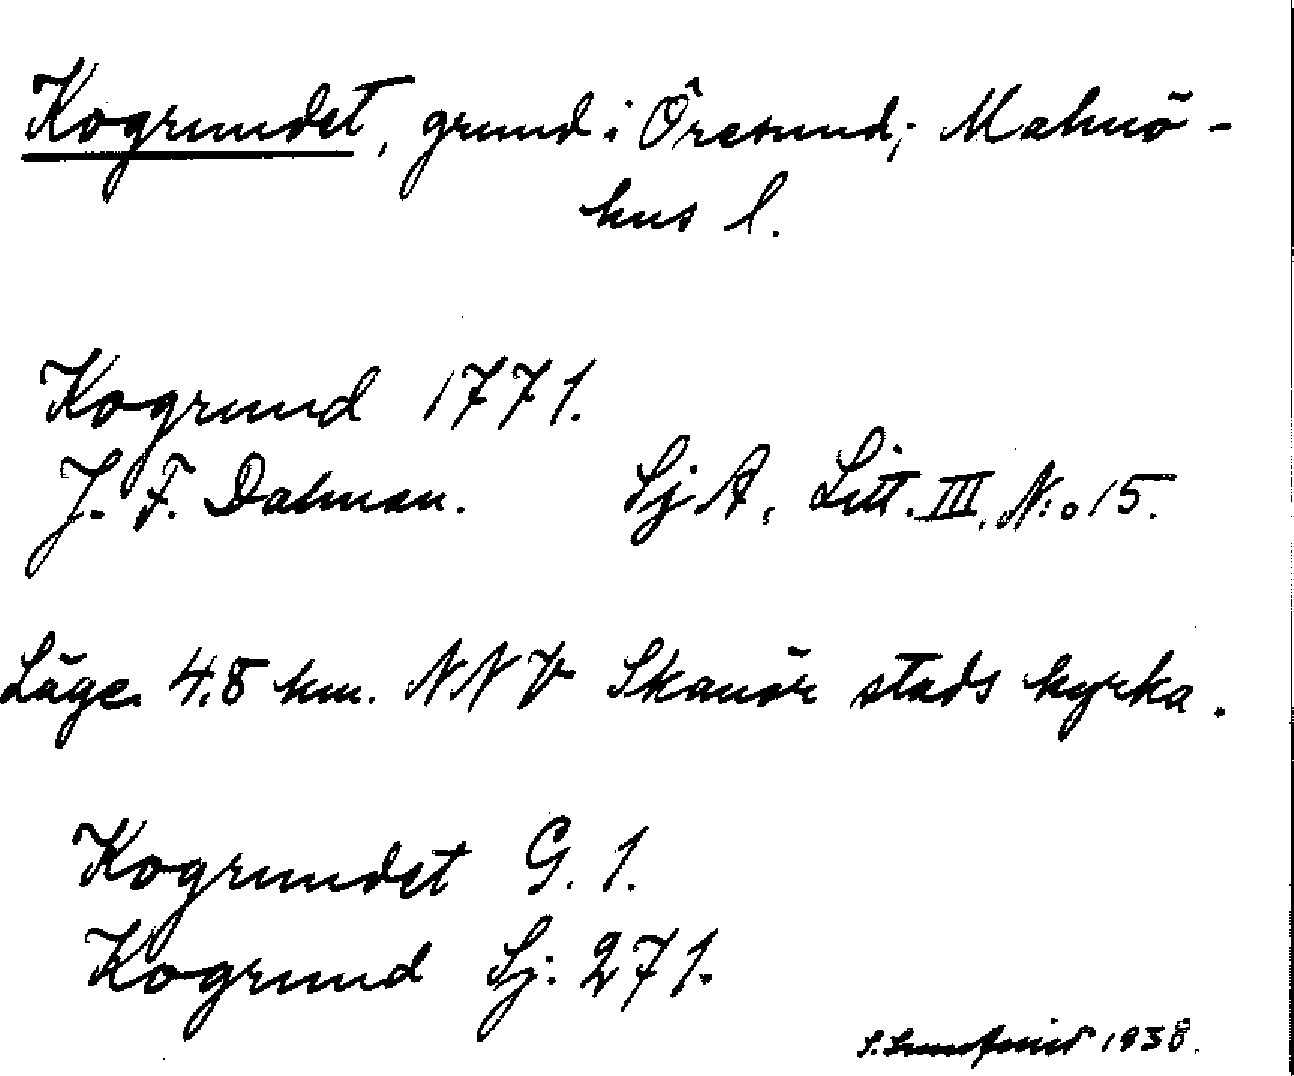 Kogrundet, grund i Öresund; Malmö-
hus l.
Kogrund 1771.
J. F. Dalman. SjA, Litt. III, N:o 15.
Läge 4.8 km. NNV Skanör stads kyrka.
Kogrundet G. 1.
Kogrund Sj. 271.
S. 1938.